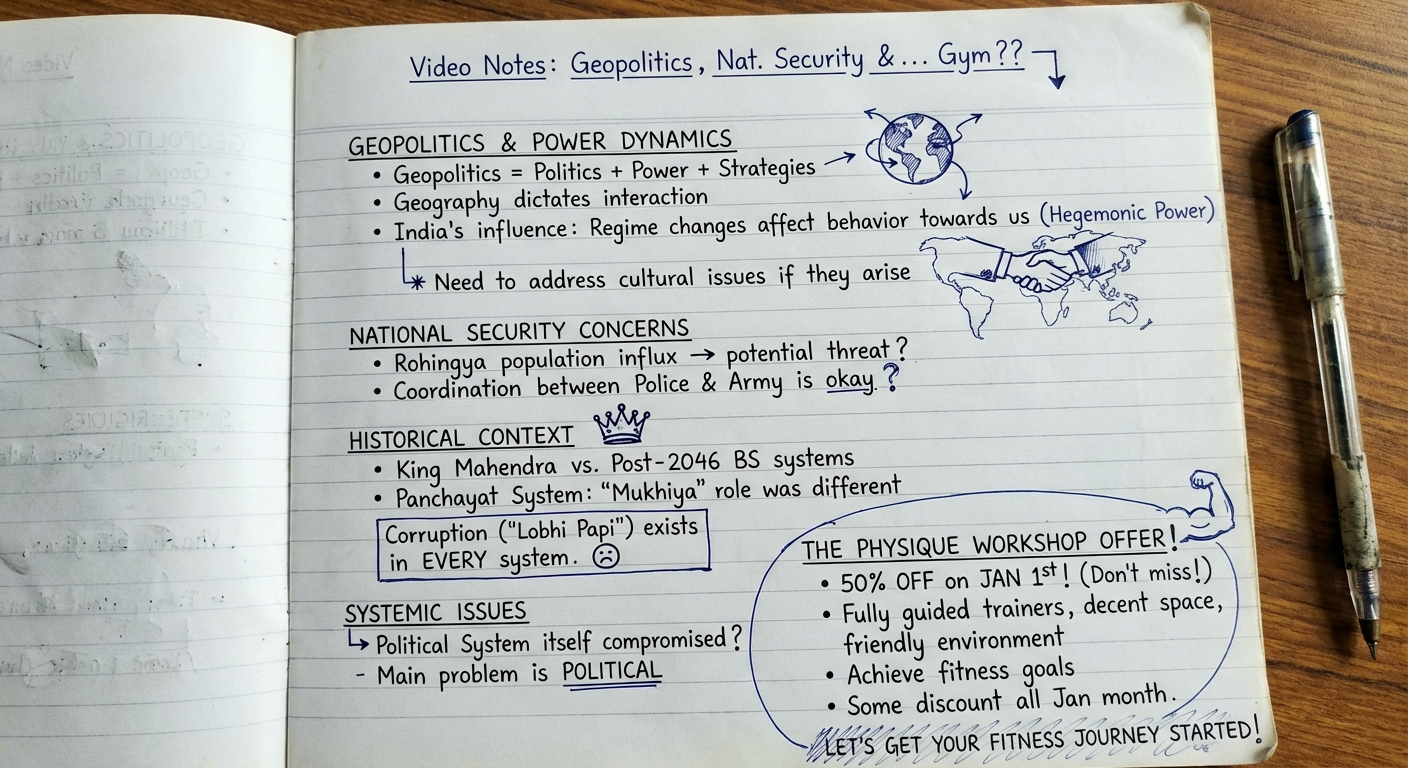 Video Notes: Geopolitics, Nat. Security & ... Gym??
GEOPOLITICS & POWER DYNAMICS
• Geopolitics = Politics + Power + Strategies →
• Geography dictates interaction
• India's influence: Regime changes affect behavior towards us (Hegemonic Power)
* Need to address cultural issues if they arise
NATIONAL SECURITY CONCERNS
• Rohingya population influx → potential threat?
• Coordination between Police & Army is okay.?
HISTORICAL CONTEXT
• King Mahendra vs. Post-2046 BS systems
• Panchayat System: "Mukhiya" role was different
Corruption ("Lobhi Papi") exists
in EVERY system. ☹
SYSTEMIC ISSUES
↳ Political System itself compromised?
- Main problem is POLITICAL
THE PHYSIQUE WORKSHOP OFFER!
• 50% OFF on JAN 1st! (Don't miss!)
• Fully guided trainers, decent space,
friendly environment
• Achieve fitness goals
• Some discount all Jan month.
LET'S GET YOUR FITNESS JOURNEY STARTED!